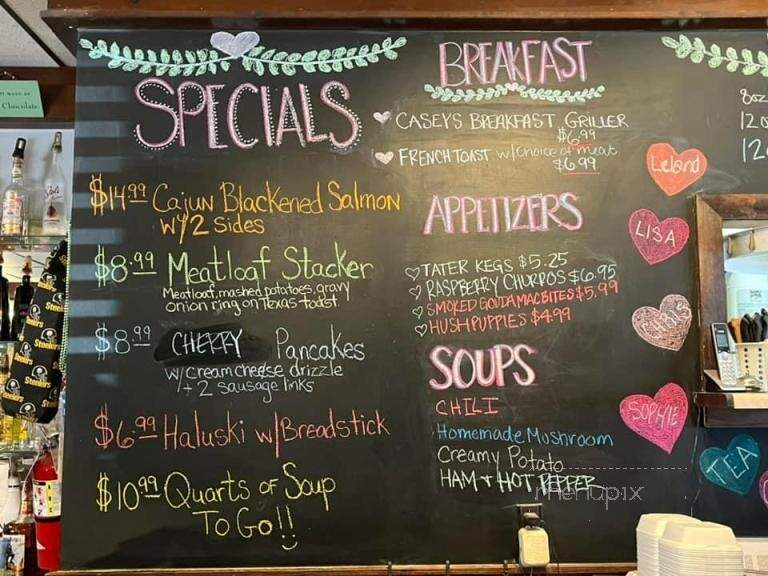 Chocolate
SPECIALS
$14.99 Cajun Blackened Salmon
w/ 2 Sides
$8.99 Meatloaf Stacker
Meatloaf, mashed potatoes, gravy
onion ring on Texas toast
$8.99 CHERRY Pancakes
w/ cream cheese drizzle
+ 2 sausage links
$6.99 Haluski w/ Breadstick
$10.99 Quarts of Soup
To Go!!
BREAKFAST
CASEYS BREAKFAST GRILLER
$6.99
FRENCH TOAST w/choice of meat
$6.99
APPETIZERS
TATER KEGS $5.25
RASPBERRY CHURROS $6.95
SMOKED GOUDA MAC BITES $5.99
HUSHPUPPIES $4.99
SOUPS
CHILI
Homemade Mushroom
Creamy Potato
HAM + HOT PEPPER
Leland
LISA
CHRIS
SOPHIE
TEA
8oz
Steelers
menupix